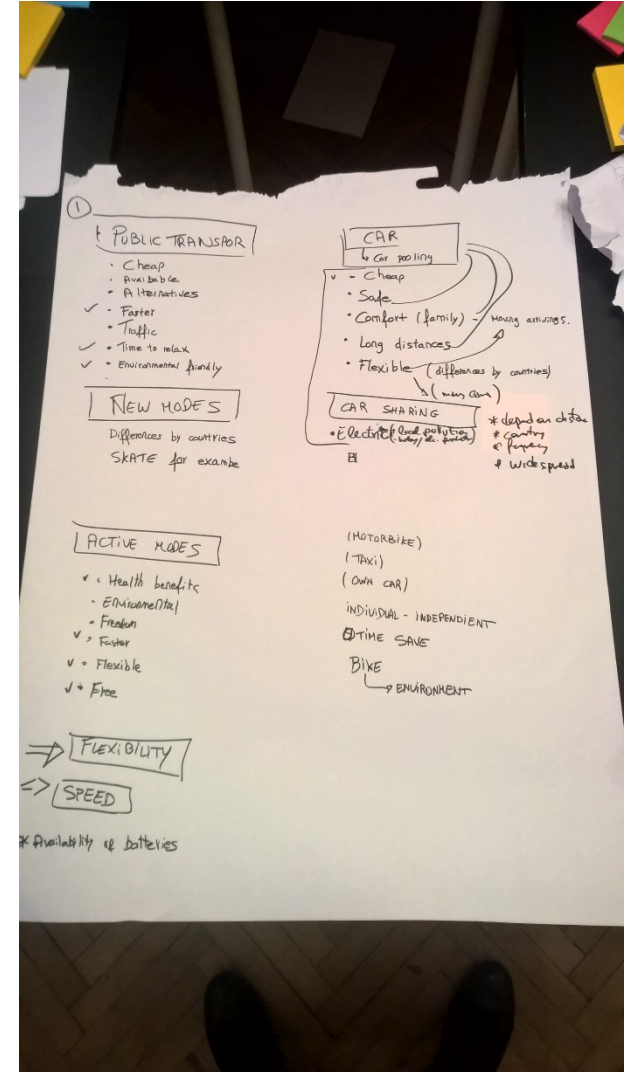 1
PUBLIC TRANSPOR
• Cheap
• Available
• Alternatives
✓ • Faster
• Traffic
✓ • Time to relax
✓ • Environmental friendly
NEW MODES
Differences by countries
SKATE for exambe
ACTIVE MODES
✓ • Health benefits
• Environmental
• Freedom
✓ • Faster
✓ • Flexible
✓ • Free
⇒ FLEXIBILITY
=> SPEED
* Availability of batteries
CAR
↳ Car pooling
✓ - Cheap
• Safe
• Comfort (family) - Moving
• Long distances
• Flexible (differences by countries)
(many cars)
CAR SHARING
• Electric (local pollution
* depend on
* country
* 
* widespread
(MOTORBIKE)
(TAXI)
(OWN CAR)
INDIVIDUAL - INDEPENDIENT
TIME SAVE
BIKE
↳ ENVIRONMENT